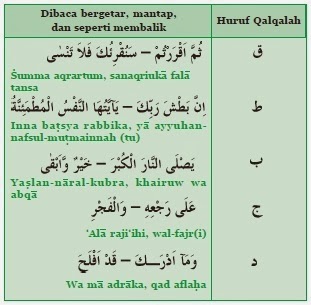 Dibaca bergetar, mantap,
dan seperti membalik
Huruf Qalqalah
ثُمَّ اَقْرَرْتُمْ – سَنُقْرِئُكَ فَلاَ تَنْسٰى
ق
Ṡumma aqrartum, sanaqriukā falā
tansa
اِنَّ بَطْشَ رَبِّكَ – يَآيَّتُهَا النَّفْسُ الْمُطْمَئِنَّةُ
ط
Inna baṭsya rabbika, yā ayyuhan-
nafsul-muṭmainnah (tu)
يَصْلَى النَّارَ الْكُبْرَ – خَيْرٌ وَّاَبْقٰى
ب
Yaṣlan-nāral-kubra, khairuw wa
abqā
عَلٰى رَجْعِهٖ – وَالْفَجْرِ
ج
‘Alā raji‘ihi, wal-fajr(i)
وَمَآ اَدْرٰىكَ – قَدْ اَفْلَحَ
د
Wa mā adrāka, qad aflaḥa